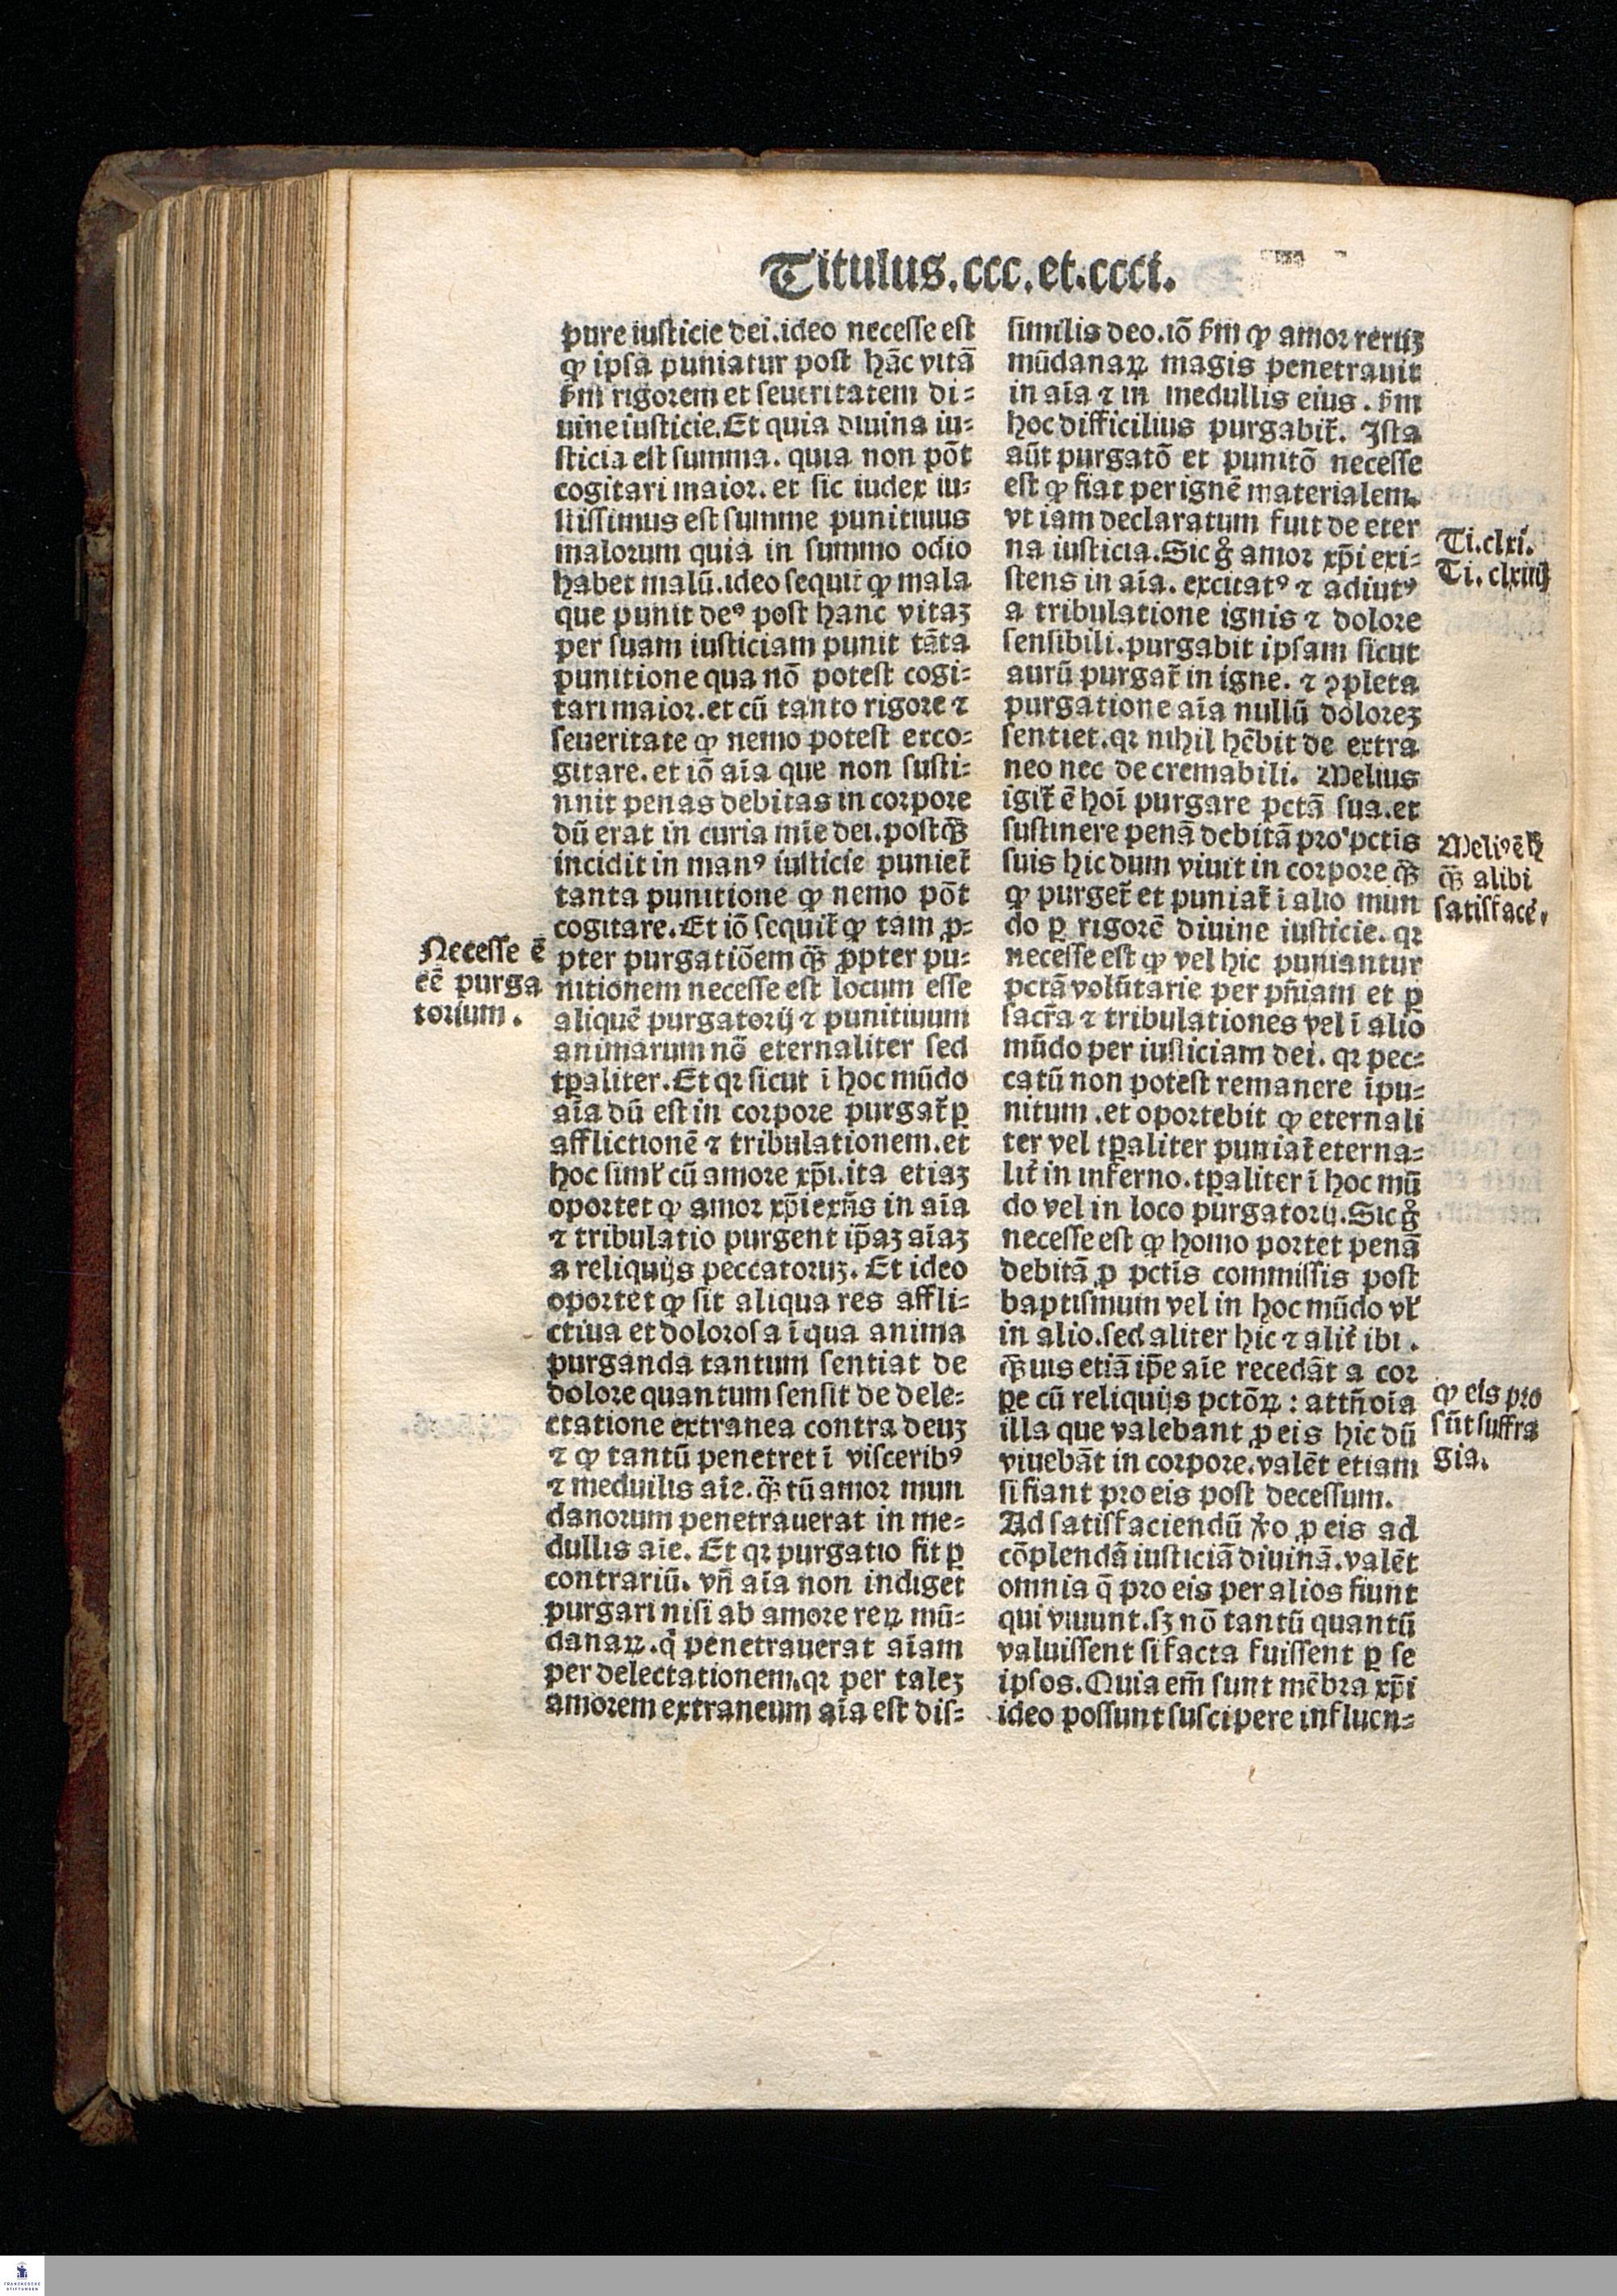 Titulus.ccc.et.ccci.
pure iusticie dei.ideo necesse est
ꝙ ipsa puniatur post hāc vitā
ẜm rigorem et seueritatem di⸗
uine iusticie.Et quia diuina iu⸗
sticia est summa. quia non pōt
cogitari maior. et sic iudex iu⸗
stissimus est summe punitiuus
malorum quia in summo odio
habet malū.ideo sequit̄ ꝙ mala
que punit deꝰ post hanc vitaȝ
per suam iusticiam punit tāta
punitione qua nō potest cogi⸗
tari maior.et cū tanto rigore ⁊
seueritate ꝙ nemo potest exco⸗
gitare. et iō aīa que non susti⸗
nnit penas debitas in corpore
dū erat in curia mīe dei.postq̄ȝ
incidit in manꝰ iusticie puniet̄
tanta punitione ꝙ nemo pōt
cogitare.Et iō sequit̄ ꝙ tam ꝓ⸗
Necesse ē
eē purga
torium.
pter purgatiōem q̄ȝ ꝓpter pu⸗
nitionem necesse est locum esse
aliquē purgatorij ⁊ punitiuum
animarum nō eternaliter sed
tꝑaliter.Et qꝛ sicut ī hoc mūdo
aīa dū est in corpore purgat̄ ꝑ
afflictionē ⁊ tribulationem.et
hoc simĺ cū amore xp̄i.ita etiaȝ
oportet ꝙ amor xp̄i exn̄s in aīa
⁊ tribulatio purgent ip̄aȝ aīaȝ
a reliquijs peccatoruȝ. Et ideo
oportet ꝙ sit aliqua res affli⸗
ctiua et dolorosa ī qua anima
purganda tantum sentiat de
dolore quantum sensit de dele⸗
ctatione extranea contra deuȝ
⁊ ꝙ tantū penetret ī visceribꝰ
⁊ medullis aīe. q̄ȝtū amor mun
danorum penetrauerat in me⸗
dullis aīe. Et qꝛ purgatio fit ꝑ
contrariū. vn̄ aīa non indiget
purgari nisi ab amore reꝝ mū⸗
danaꝝ.q̄ penetrauerat aīam
per delectationem.qꝛ per taleȝ
amorem extraneum aīa est dis⸗
similis deo.iō ẜm ꝙ amor reruȝ
mūdanaꝝ magis penetrauit
in aīa ⁊ in medullis eius. ẜm
hoc difficilius purgabit̄. Ista
aūt purgatō et punitō necesse
est ꝙ fiat per ignē materialem.
vt iam declaratum fuit de eter
Ti.clxi.
na iusticia.Sic g̊ amor xp̄i exi⸗
Ti.clxiiij
stens in aīa. excitatꝰ ⁊ adiutꝰ
a tribulatione ignis ⁊ dolore
sensibili.purgabit ipsam sicut
aurū purgat̄ in igne. ⁊ ꝯpleta
purgatione aīa nullū doloreȝ
sentiet.qꝛ nihil hēbit de extra
neo nec de cremabili. Melius
igit̄ ē hoī purgare pctā sua.et
sustinere penā debitā pro pctīs
Meliꝰ ē
q̄ȝ alibi
satisfacē.
suis hic dum viuit in corpore q̄ȝ
ꝙ purget̄ et puniat̄ ī alio mun
do ꝑ rigorē diuine iusticie. qꝛ
necesse est ꝙ vel hic puniantur
pctā volūtarie per pn̄iam et ꝑ
sacr̄a ⁊ tribulationes vel ī alio
mūdo per iusticiam dei. qꝛ pec⸗
catū non potest remanere īpu⸗
nitum.et oportebit ꝙ eternali
ter vel tꝑaliter puniat̄ eterna⸗
lit̄ in inferno.tꝑaliter ī hoc mū
do vel in loco purgatorij.Sic g̊
necesse est ꝙ homo portet penā
debitā ꝓ pctīs commissis post
baptismum vel in hoc mūdo vĺ
in alio.sed aliter hic ⁊ alit̄ ibi.
q̄ȝuis etiā ip̄e aīe recedāt a cor
ꝑe cū reliquijs pctōꝝ : attn̄ oīa
ꝙ eis pro
sūt suffra
gia.
illa que valebant ꝓ eis hic dū
viuebāt in corpore.valēt etiam
si fiant pro eis post decessum.
Ad satisfaciendū ꝟo ꝓ eis ad
cōplendā iusticiā diuinā.valēt
omnia q̄ pro eis per alios fiunt
qui viuunt.sȝ nō tantū quantū
valuissent si facta fuissent ꝑ se
ipsos.Quia em̄ sunt mēbra xp̄i
ideo possunt suscipere influen⸗
FRANCKESCHE
STIFTUNGEN